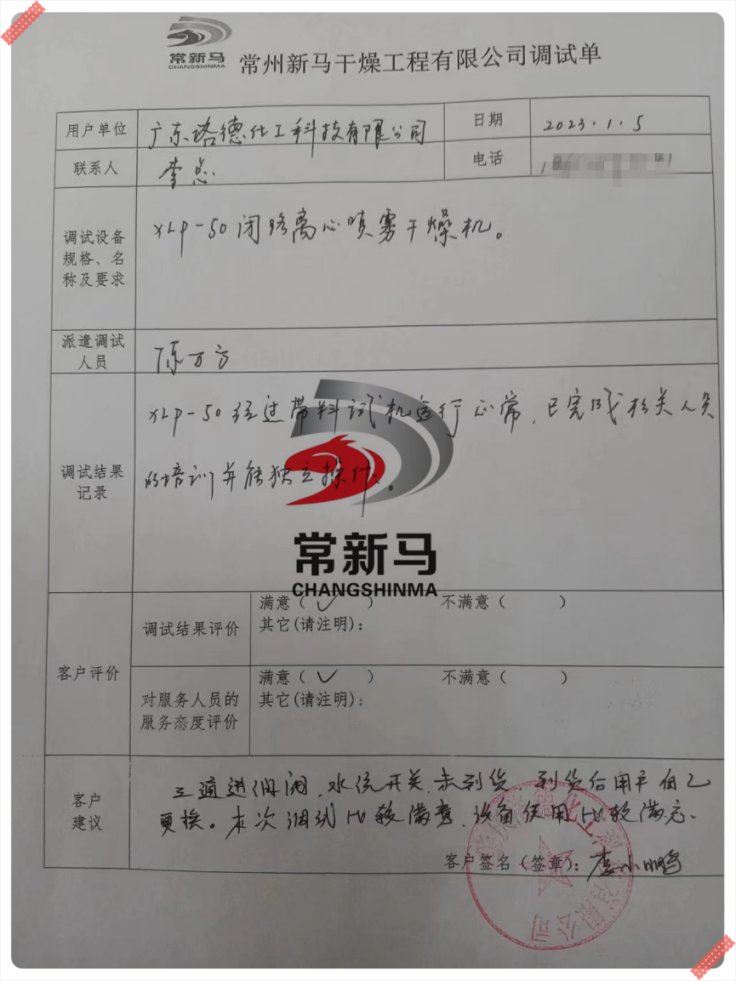 常新马
CHANGSHINMA
常州新马干燥工程有限公司调试单
用户单位
广东洛德化工科技有限公司
日期
2023.1.5
联系人
李总
电话
调试设备
规格、名
称及要求
XLP-50闭路离心喷雾干燥机。
派遣调试
人员
陈万方
调试结果
记录
XLP-50经过带料试机运行正常,已完成相关人员
的培训并能独立操作。
常新马
CHANGSHINMA
客户评价
调试结果评价
满意(✓) 不满意( )
其它(请注明):
对服务人员的
服务态度评价
满意(✓) 不满意( )
其它(请注明):
客户
建议
三通进阀,水流开关,未到货,到货后用户自己
更换。本次调试比较满意,设备使用比较满意.
客户签名(签章):李小鹏
有限公司